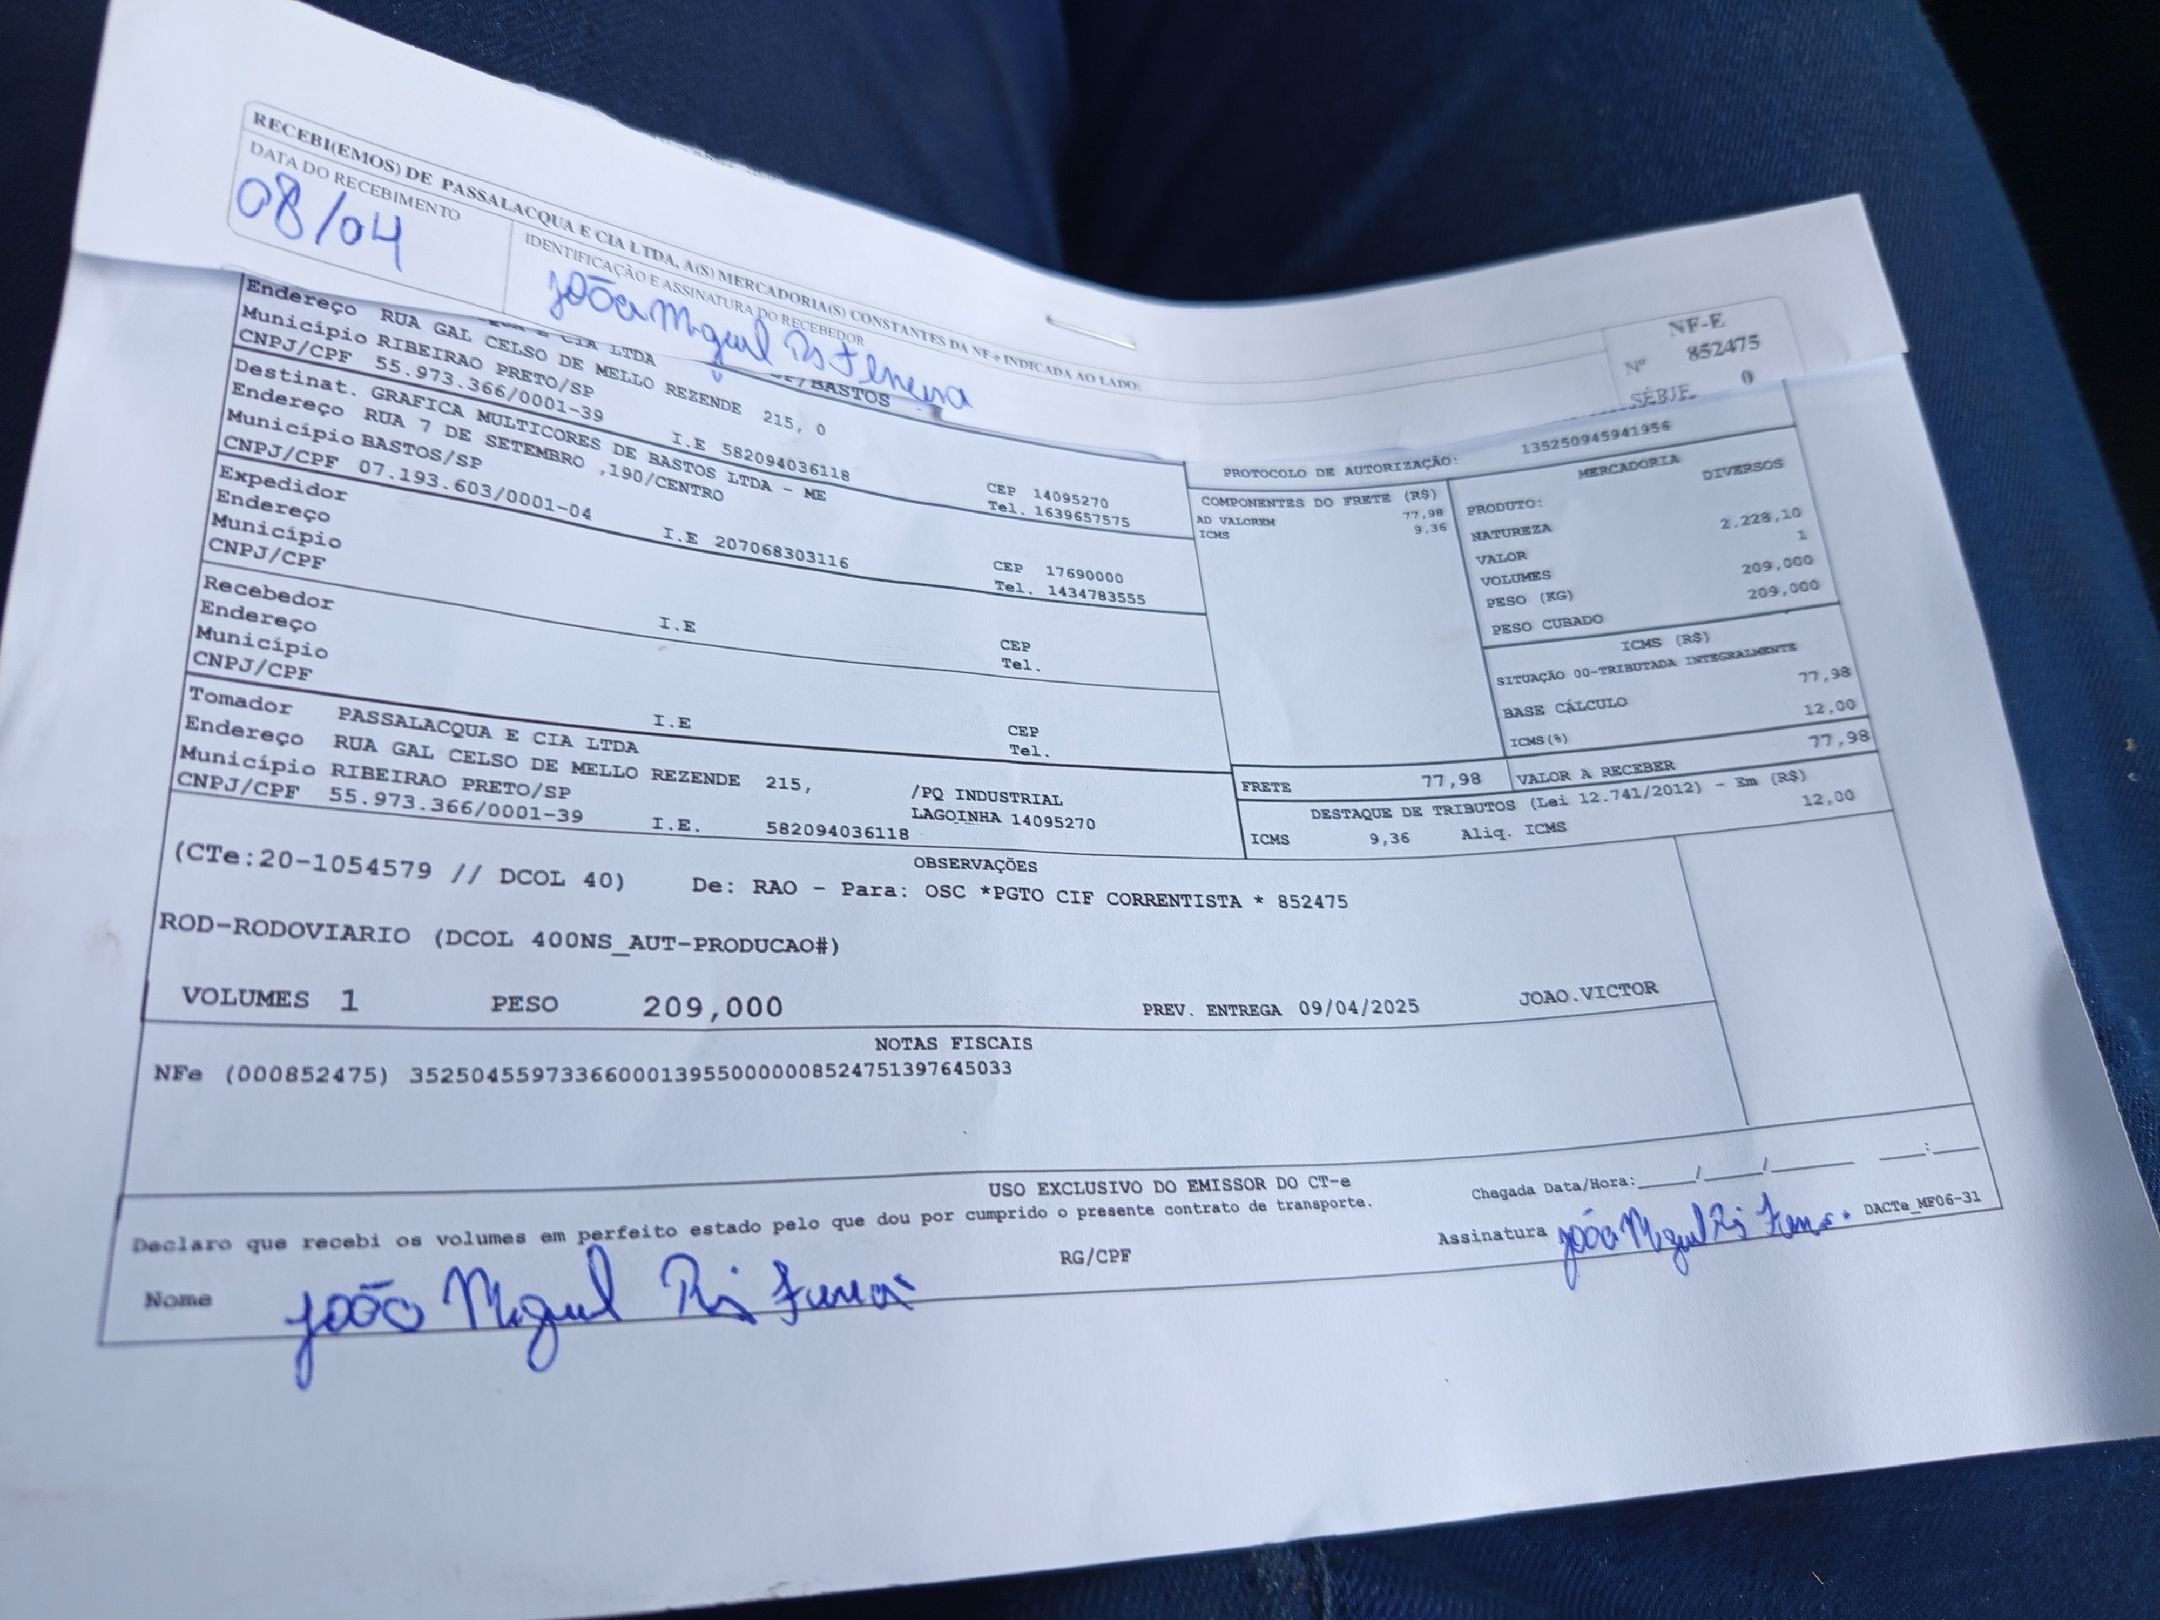 RECEBI(EMOS) DE PASSALACQUA E CIA LTDA, A(S) MERCADORIA(S) CONSTANTES DA NF-e INDICADA AO LADO:
DATA DO RECEBIMENTO
08/04
IDENTIFICAÇÃO E ASSINATURA DO RECEBEDOR
João Miguel Ferreira
NF-E
Nº 852475
SÉRIE 0
CIA LTDA
/BASTOS
Endereço RUA GAL CELSO DE MELLO REZENDE 215, 0
Município RIBEIRAO PRETO/SP CEP 14095270
CNPJ/CPF 55.973.366/0001-39 I.E 582094036118 Tel. 1639657575
Destinat. GRAFICA MULTICORES DE BASTOS LTDA - ME
Endereço RUA 7 DE SETEMBRO ,190/CENTRO
Município BASTOS/SP CEP 17690000
CNPJ/CPF 07.193.603/0001-04 I.E 207068303116 Tel. 1434783555
Expedidor
Endereço
Município CEP
CNPJ/CPF I.E Tel.
Recebedor
Endereço
Município CEP
CNPJ/CPF I.E Tel.
Tomador PASSALACQUA E CIA LTDA
Endereço RUA GAL CELSO DE MELLO REZENDE 215, /PQ INDUSTRIAL
Município RIBEIRAO PRETO/SP LAGOINHA 14095270
CNPJ/CPF 55.973.366/0001-39 I.E. 582094036118
PROTOCOLO DE AUTORIZAÇÃO: 135250945941956
COMPONENTES DO FRETE (R$)
AD VALOREM 77,98
ICMS 9,36
MERCADORIA
PRODUTO: DIVERSOS
NATUREZA
VALOR 2.228,10
VOLUMES 1
PESO (KG) 209,000
PESO CUBADO 209,000
ICMS (R$)
SITUAÇÃO 00-TRIBUTADA INTEGRALMENTE
BASE CÁLCULO 77,98
ICMS(%) 12,00
FRETE 77,98 VALOR A RECEBER 77,98
DESTAQUE DE TRIBUTOS (Lei 12.741/2012) - Em (R$)
ICMS 9,36 Aliq. ICMS 12,00
OBSERVAÇÕES
(CTe:20-1054579 // DCOL 40) De: RAO - Para: OSC *PGTO CIF CORRENTISTA * 852475
ROD-RODOVIARIO (DCOL 400NS_AUT-PRODUCAO#)
VOLUMES 1 PESO 209,000 PREV. ENTREGA 09/04/2025 JOAO.VICTOR
NOTAS FISCAIS
NFe (000852475) 35250455973366000139550000008524751397645033
USO EXCLUSIVO DO EMISSOR DO CT-e
Declaro que recebi os volumes em perfeito estado pelo que dou por cumprido o presente contrato de transporte.
Chegada Data/Hora:_____/_____/_______ ___:___
Nome João Miguel RG/CPF Assinatura João Miguel DACTe_MF06-31